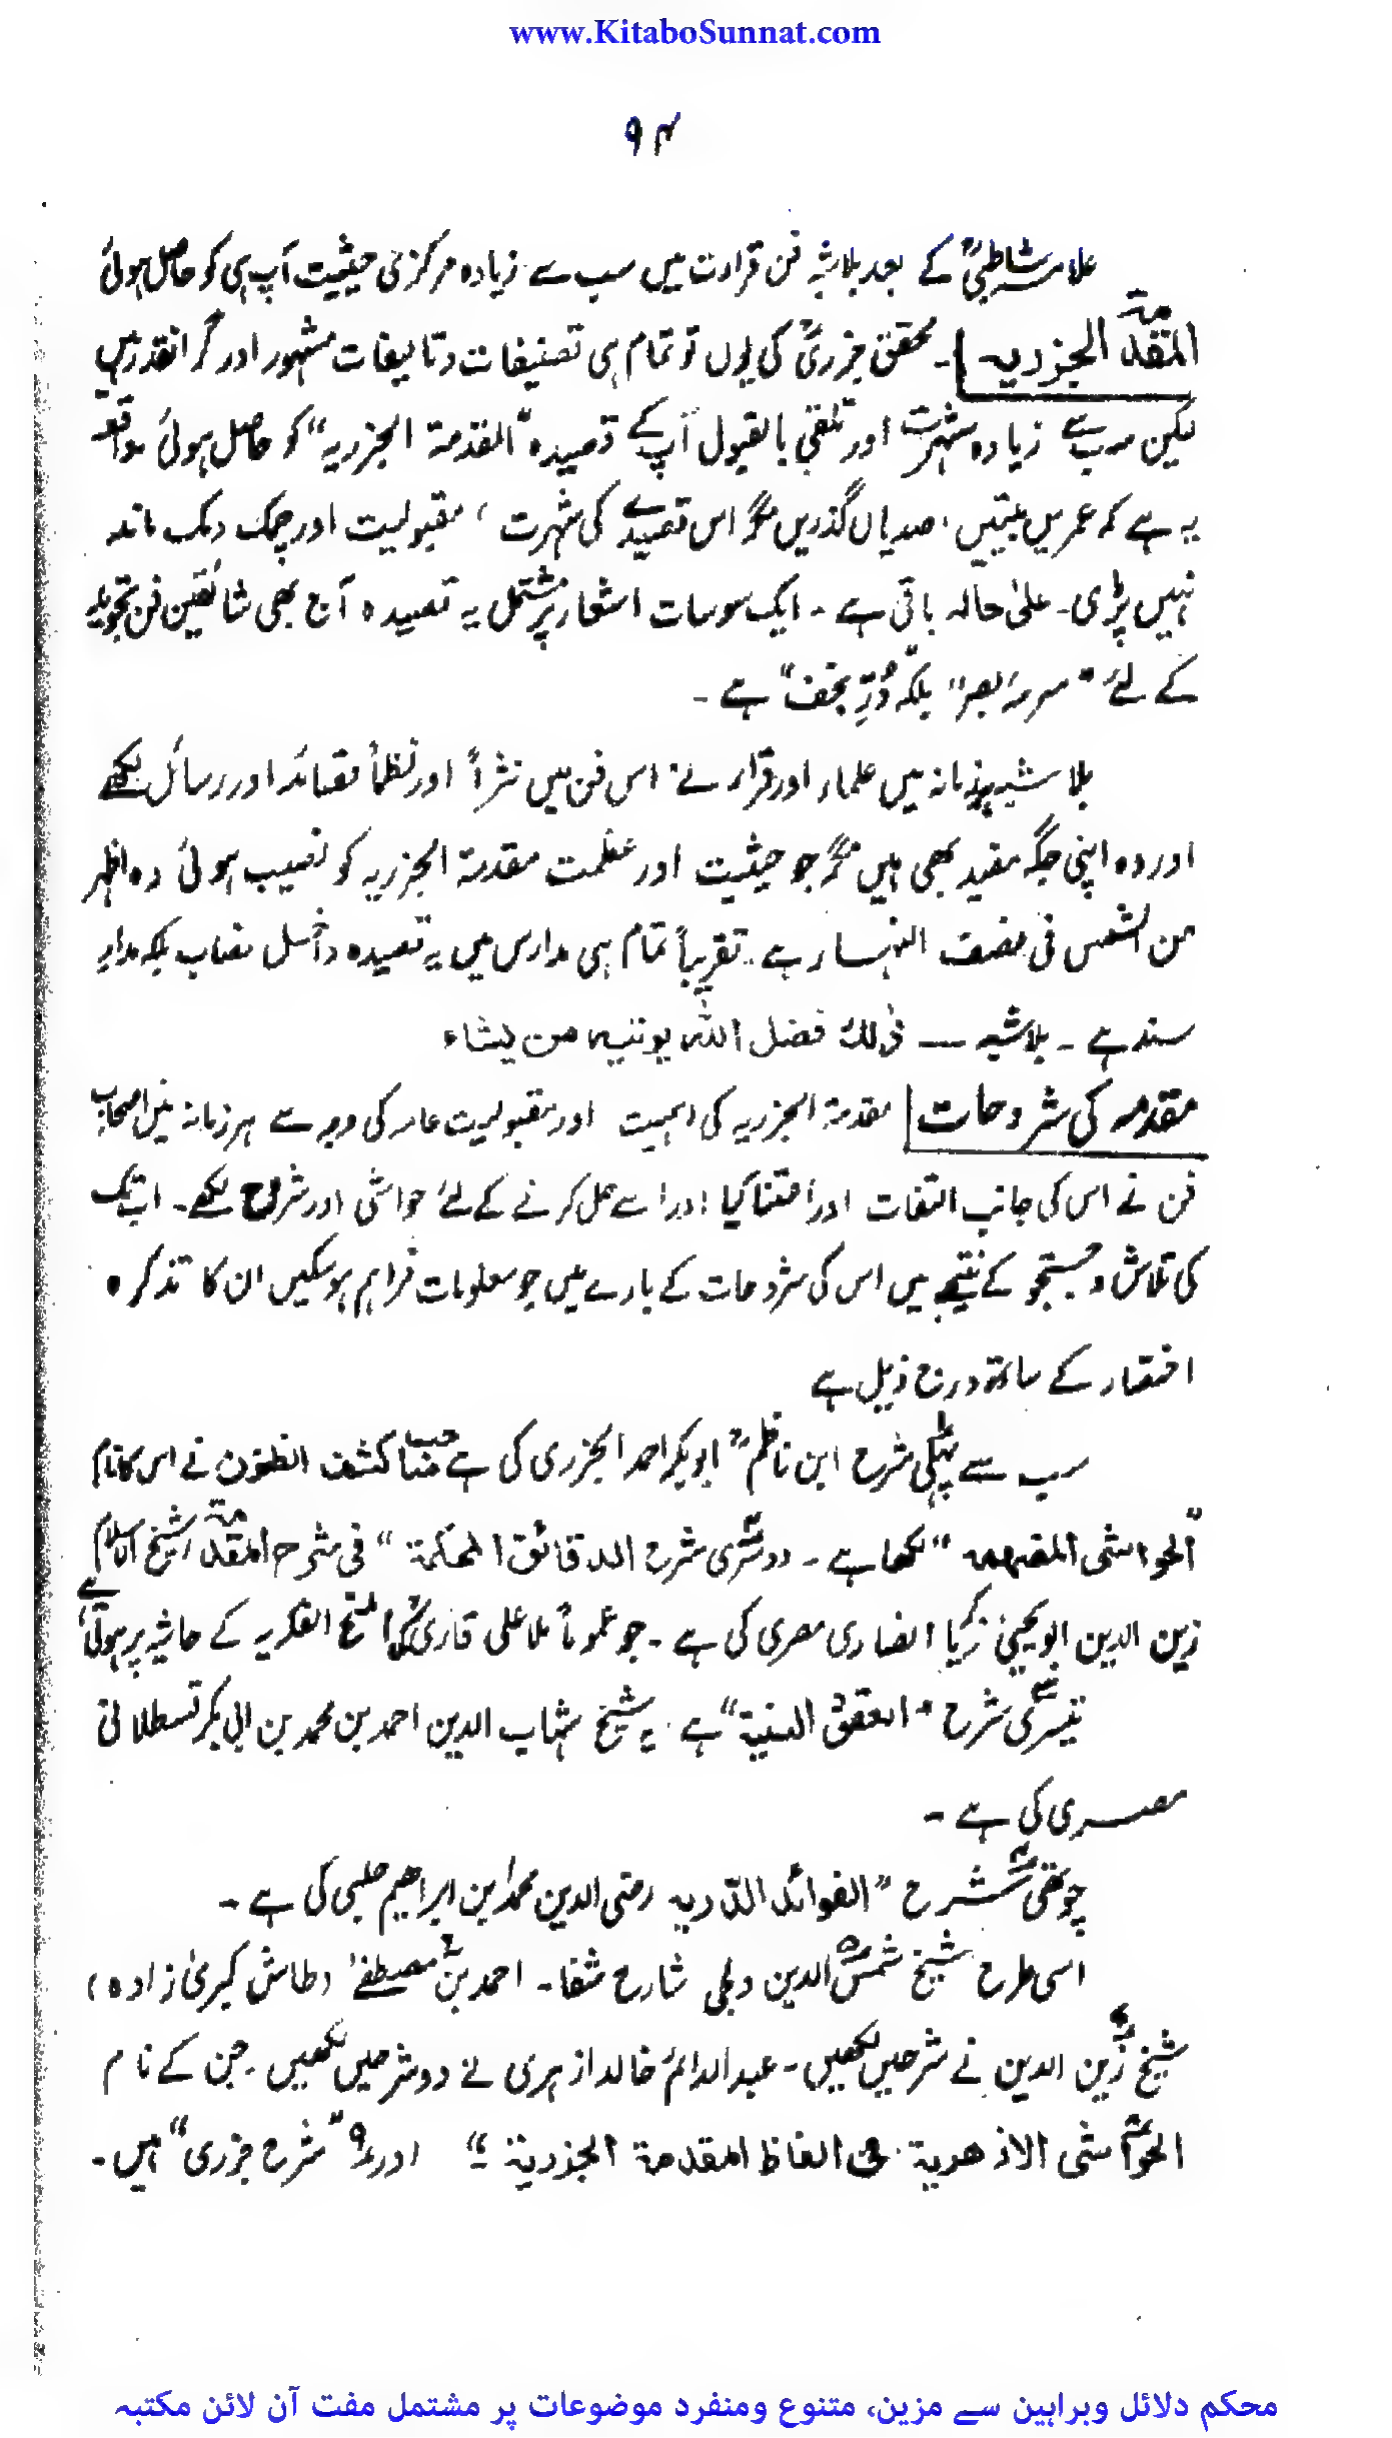 www.KitaboSunnat.com
۹۴
علامہ شاطبیؒ کے بعد بلاشبہ فن قرارت میں سب سے زیادہ مرکزی حیثیت آپ ہی کو حاصل ہوئی
المقدمۃ الجزریہ ۔ محقق جزریؒ کی یوں تو تمام ہی تصنیفات و تالیفات مشہور اور گرانقدر ہیں
لیکن سب سے زیادہ شہرت اور تلقی بالقبول آپ کے قصیدہ "المقدمۃ الجزریہ" کو حاصل ہوئی واقعہ
یہ ہے کہ عمریں بیتیں، صدیاں گذریں مگر اس قصیدے کی شہرت، مقبولیت اور چمک دمک ماند
نہیں پڑی۔ علیٰ حالہ باقی ہے ۔ ایک سو سات اشعار پر مشتمل یہ قصیدہ آج بھی شائقین فن تجوید
کے لئے "سرمۂ بصر" بلکہ "دُرِّ نجف" ہے ۔
بلا شبہ ہر زمانہ میں علماء اور قرار نے اس فن میں نثراً اور نظماً قصائد اور رسائل لکھے
اور وہ اپنی جگہ مفید بھی ہیں مگر جو حیثیت اور عظمت مقدمۃ الجزریہ کو نصیب ہوئی وہ اظہر
من الشمس فی نصف النہار ہے ۔ تقریباً تمام ہی مدارس میں یہ قصیدہ داخل نصاب بلکہ مدار
سند ہے ۔ بلاشبہ — ذٰلک فضل اللہ یوتیہ من یشاء
مقدمہ کی شروحات مقدمۃ الجزریہ کی اہمیت اور مقبولیت عامہ کی وجہ سے ہر زمانہ میں اصحاب
فن نے اس کی جانب التفات اور اعتنا کیا اور اسے حل کرنے کے لئے حواشی اور شروح لکھے ۔ اب تک
کی تلاش و جستجو کے نتیجے میں اس کی شروحات کے بارے میں جو معلومات فراہم ہوسکیں ان کا تذکرہ
اختصار کے ساتھ درج ذیل ہے
سب سے پہلی شرح ابن ناظمؒ ابوبکر احمد الجزری کی ہے صاحب کشف الظنون نے اس کا نام
"الحواشی المفہمہ" لکھا ہے ۔ دوسری شرح الدقائق المحکمۃ" فی شرح المقدمۃ شیخ الاسلام
زین الدین ابو یحییٰ زکریا انصاری مصری کی ہے ۔ جو عموماً ملا علی قاریؒ کی المنح الفکریہ کے حاشیہ پر ہوتی ہے
تیسری شرح "العقود السنیۃ" ہے یہ شیخ شہاب الدین احمد بن محمد بن ابی بکر قسطلانی
مصری کی ہے ۔
چوتھی شرح "الفوائد السریہ رضی الدین محمد ابن ابراہیم حلبی کی ہے ۔
اسی طرح شیخ شمس الدین دلجی شارح شفا ۔ احمد بن مصطفےٰ (طاش کبریٰ زادہ)
شیخ زین الدین نے شرحیں لکھیں ۔ عبد الدائم خالد ازہری نے دو شرحیں لکھیں ۔ جن کے نام
الحواشی الازھریۃ فی الفاظ المقدمۃ الجزریۃ" اور "شرح جزری" ہیں ۔
محکم دلائل وبراہین سے مزین، متنوع ومنفرد موضوعات پر مشتمل مفت آن لائن مکتبہ